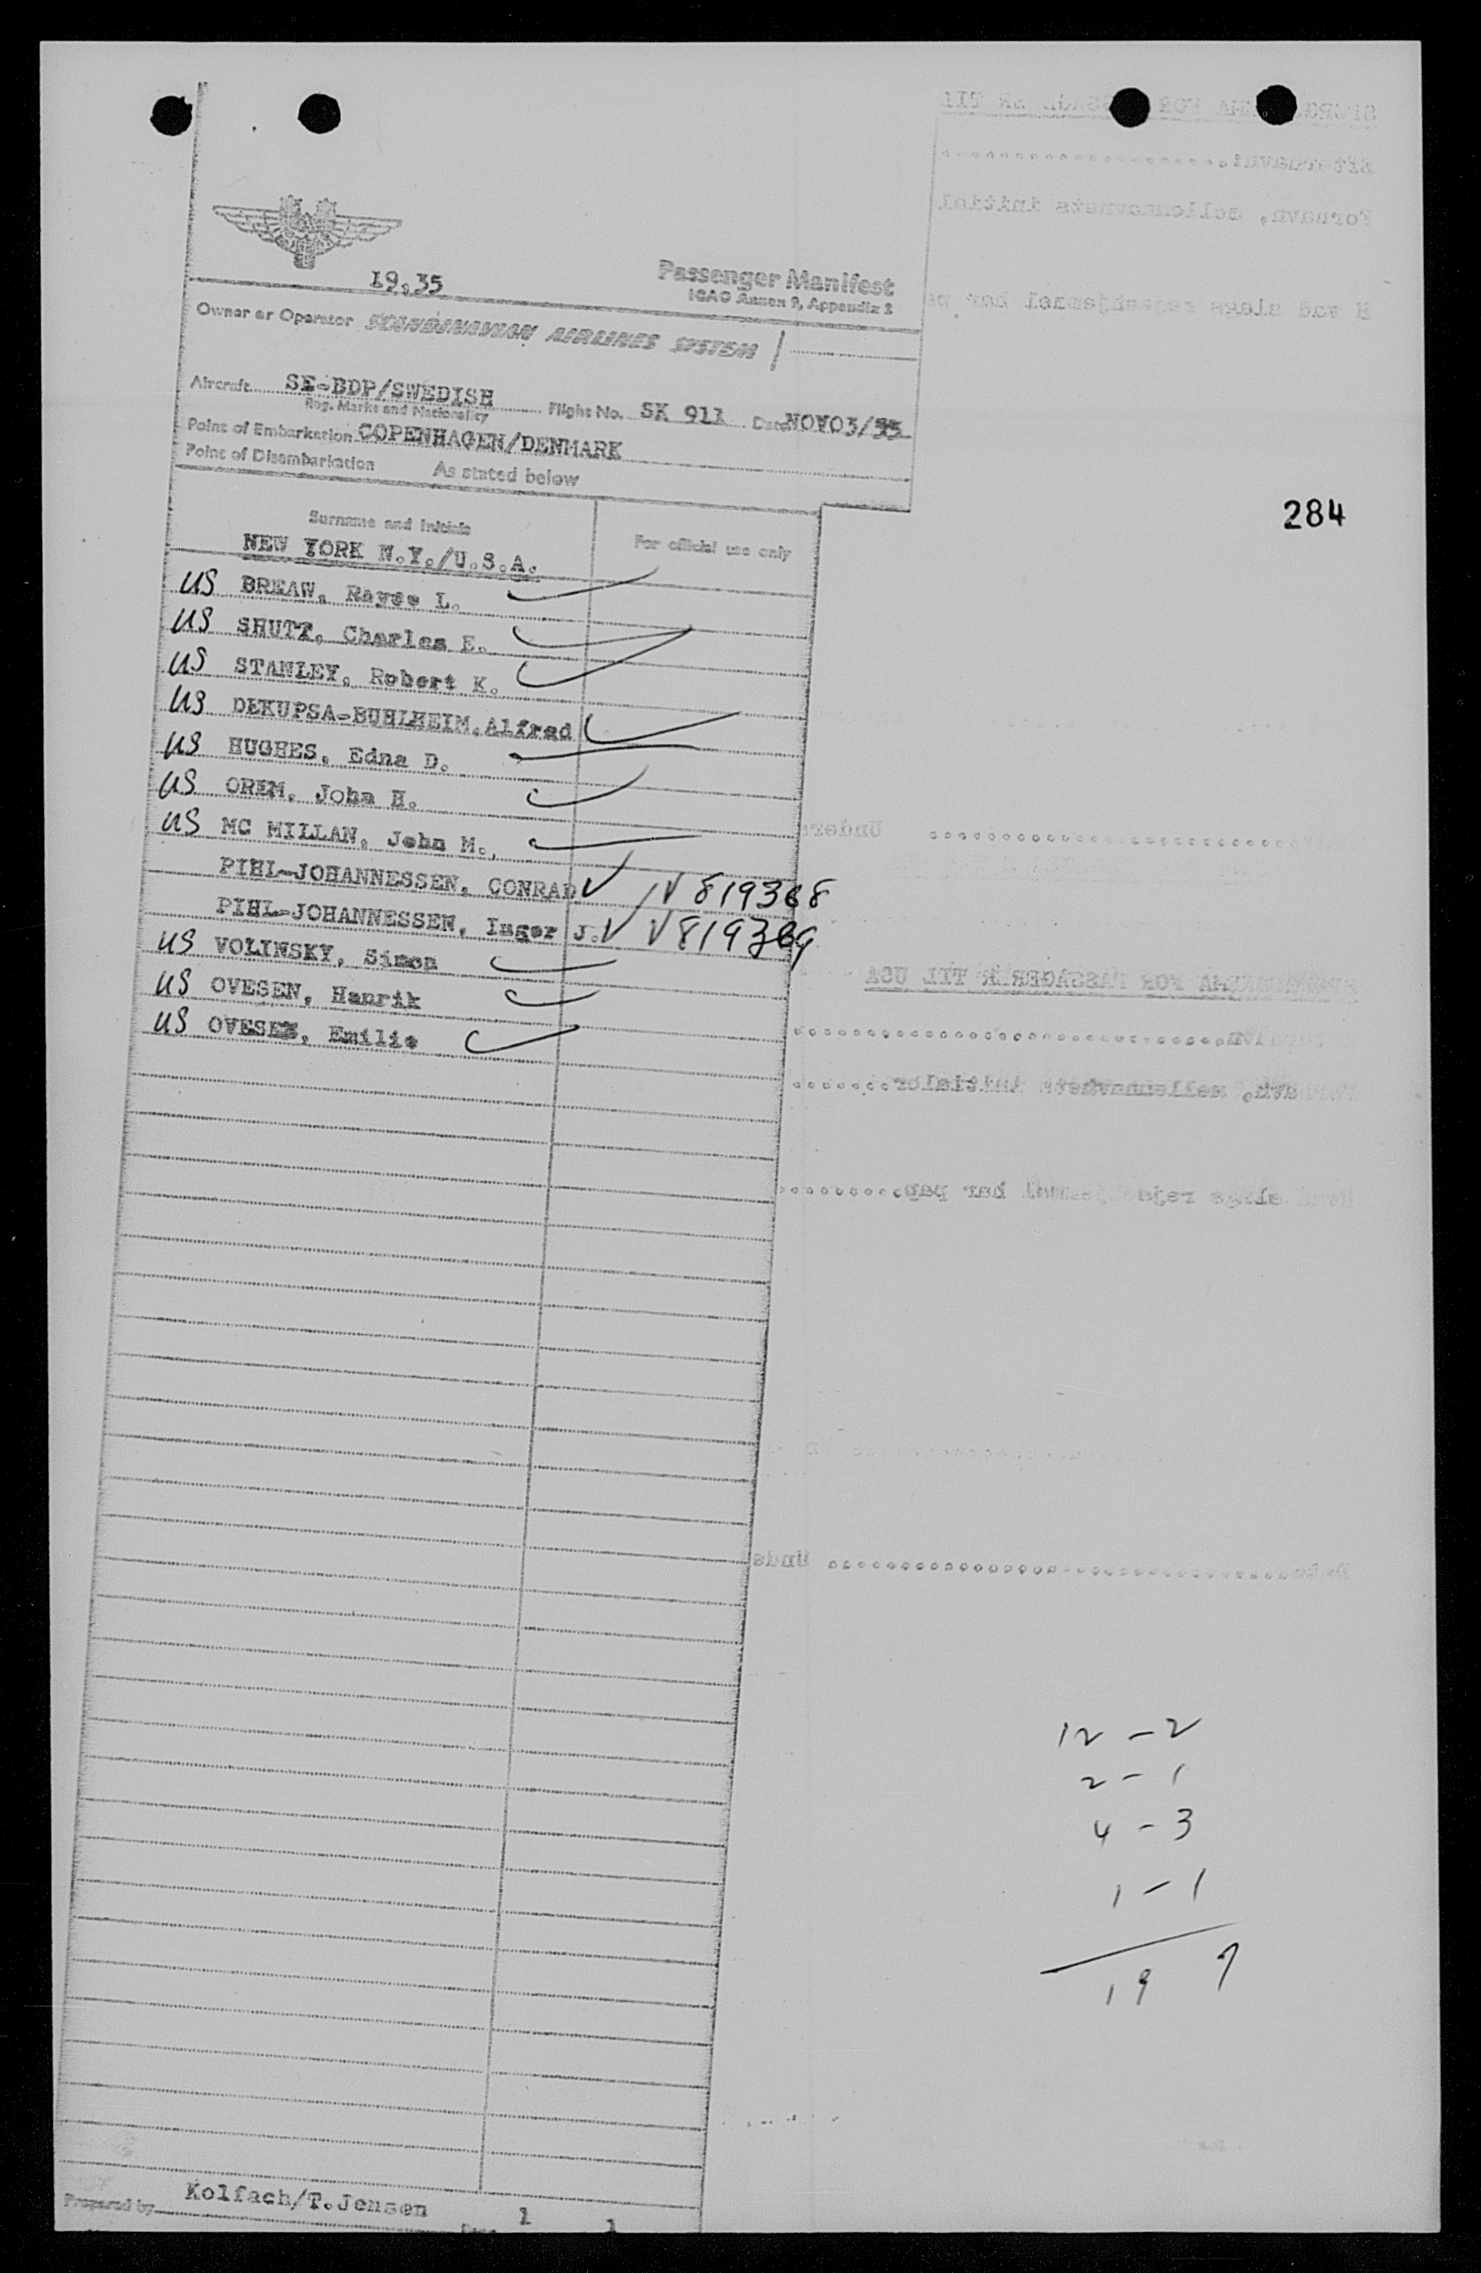 19.35
Passenger Manifest
ICAO Annex 9, Appendix 2
Owner or Operator SCANDINAVIAN AIRLINES SYSTEM
Aircraft SE-BDP/SWEDISH Flight No. SK 911 Date NOV03/55
Reg. Marks and Nationality
Point of Embarkation COPENHAGEN/DENMARK
Point of Disembarkation As stated below
284
Surname and Initials For official use only
NEW YORK N.Y./U.S.A.
US BREAW, Rayse L.
US SHUTT, Charles E.
US STANLEY, Robert K.
US DEKUPSA-BUHLHEIM, Alfred
US HUGHES, Edna D.
US OREM, John H.
US MC MILLAN, John M.,
PIHL-JOHANNESSEN, CONRAD V 819368
PIHL-JOHANNESSEN, Inger J. V 819369
US VOLINSKY, Simon
US OVESEN, Henrik
US OVESEN, Emilie
12 - 2
2 - 1
4 - 3
1 - 1
19 7
Prepared by Kolfach/T.Jensen
1 1